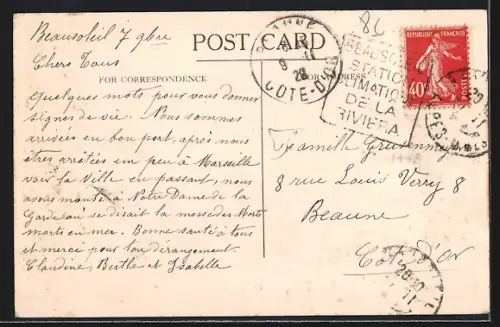 Beausoleil 7 9bre
Chers Tous
POST CARD
FOR CORRESPONDENCE
FOR ADDRESS
Quelques mots pour vous donner
signes de vie. Nous sommes
arrivées en bon port, après nous
être arrêtées un peu à Marseille
voir la Ville en passant, nous
avons monté à Notre Dame de la
Garde où se disait la messe des Morts
morts en mer. Bonne santé à tous
et merci pour ton dérangement.
Claudine, Berthe et Isabelle
86
BEAUNE
28
COTE-D'OR
BEAUSOLEIL
STATION
CLIMATIQUE
DE LA
RIVIERA
REPUBLIQUE FRANÇAISE
40c
POSTES
Famille
8 rue Louis Very 8
Beaune
Côte d'Or